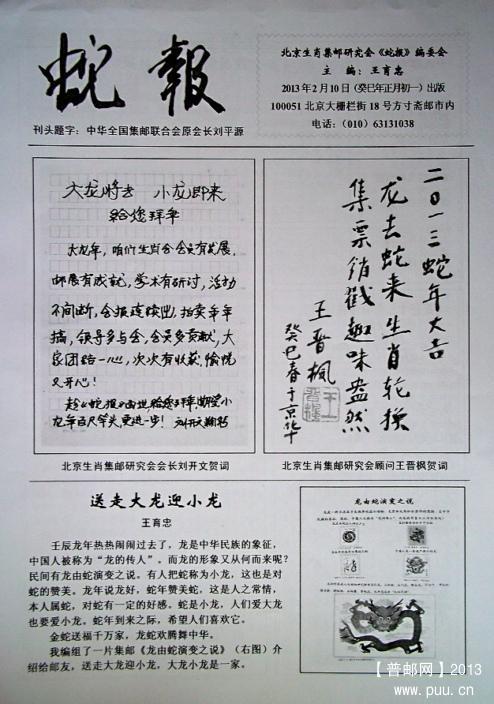 蛇報
刊头题字：中华全国集邮联合会原会长刘平源
北京生肖集邮研究会《蛇报》编委会
主　编：王育忠
2013年2月10日（癸巳年正月初一）出版
100051 北京大栅栏街18号方寸斋邮市内
电话：（010）63131038
大龙将去　小龙即来
给您拜年
大龙年，咱们生肖会会员有发展，
邮展有成就，学术有研讨，活动
不间断，会报连续出，拍卖年年
搞，领导多与会，会员多贡献，大
家团结一心，次次有收获，愉悦
又开心！
趁《蛇报》面世，给您拜年，期望小
龙年百尺竿头，更进一步！ 刘开文
北京生肖集邮研究会会长刘开文贺词
二〇一三蛇年大吉
龙去蛇来生肖轮换
集票销戳趣味盎然
王晋枫
癸巳春于京华
北京生肖集邮研究会顾问王晋枫贺词
送走大龙迎小龙
王育忠
壬辰龙年热热闹闹过去了，龙是中华民族的象征，
中国人被称为“龙的传人”。而龙的形象又从何而来呢？
民间有龙由蛇演变之说。有人把蛇称为小龙，这也是对
蛇的赞美。龙年说龙好，蛇年赞美蛇，这是人之常情，
本人属蛇，对蛇有一定的好感。蛇是小龙，人们爱大龙
也要爱小龙。蛇年到来之际，希望人们喜欢它。
金蛇送福千万家，龙蛇欢腾舞中华。
我编组了一片集邮《龙由蛇演变之说》（右图）介
绍给邮友，送走大龙迎小龙，大龙小龙是一家。
龙由蛇演变之说
【普邮网】2013
www.puu.cn